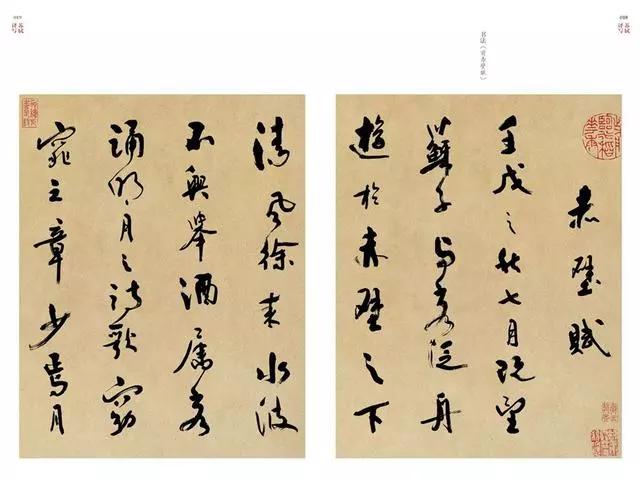 书法《前赤壁赋》
赤壁賦
壬戌之秋七月既望
蘇子与客泛舟
遊於赤壁之下
清風徐来水波
不興舉酒屬客
誦明月之詩歌窈
窕之章少焉月